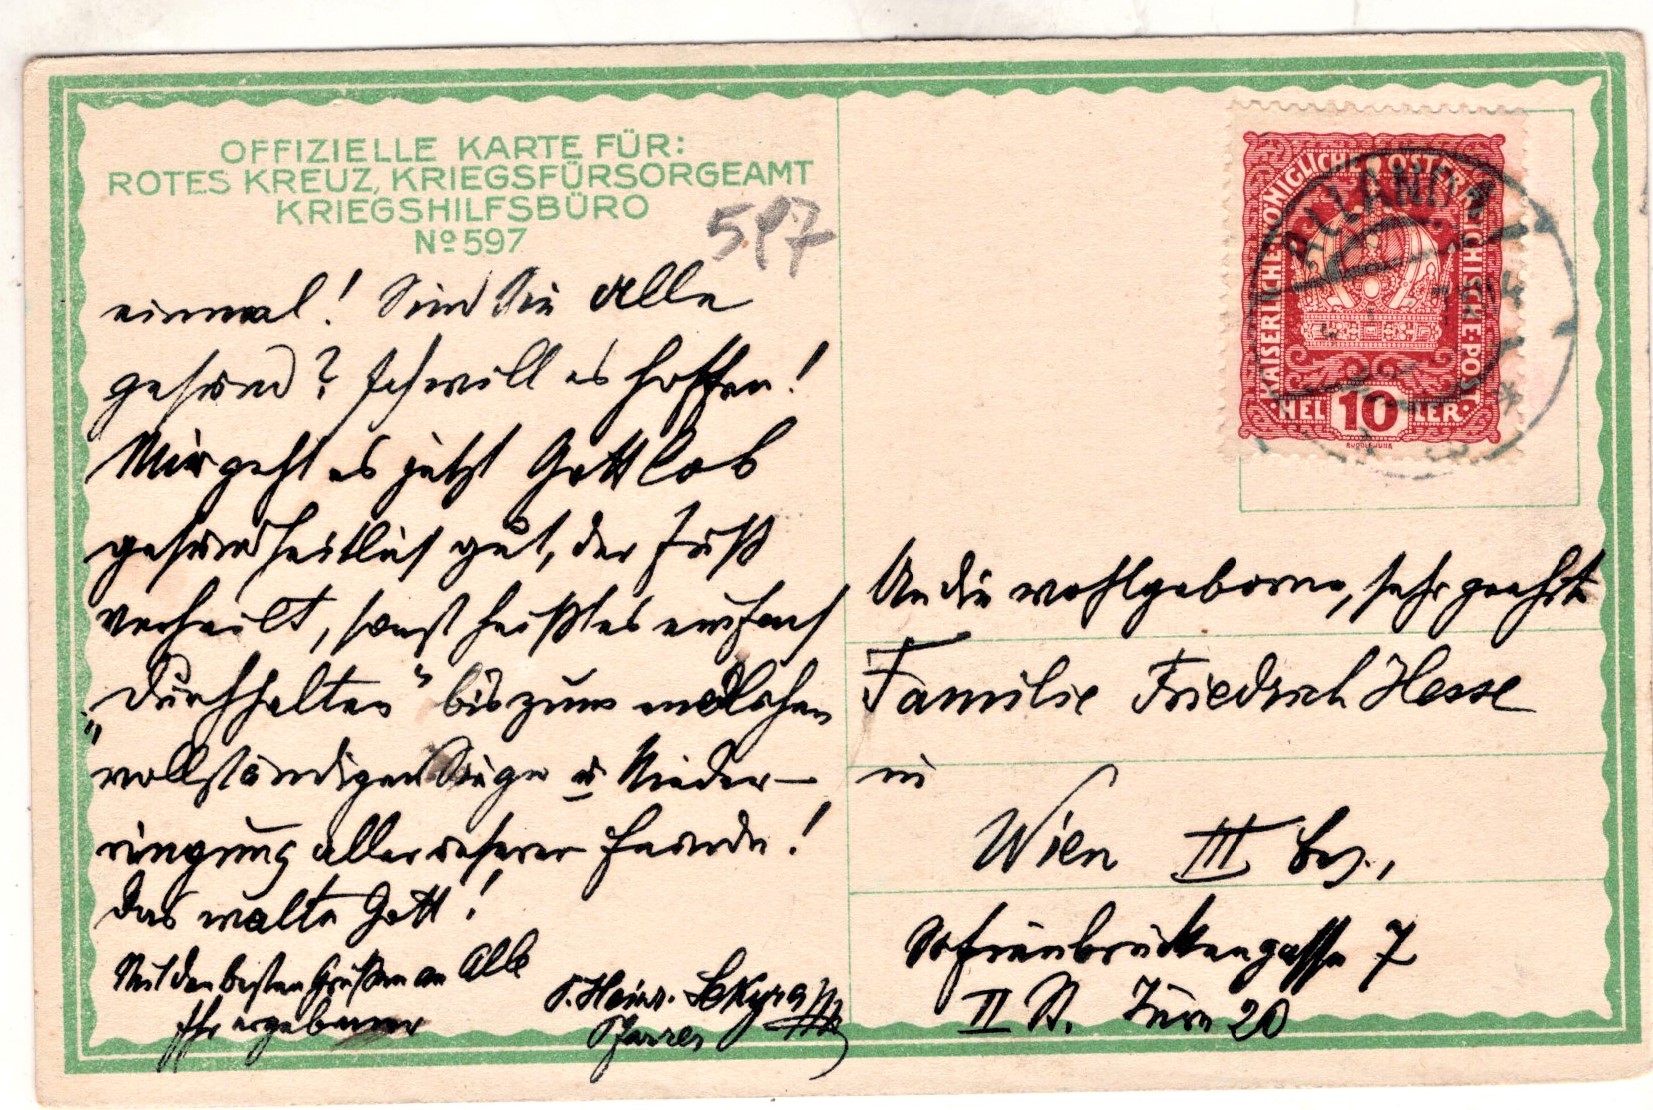 OFFIZIELLE KARTE FÜR:
ROTES KREUZ, KRIEGSFÜRSORGEAMT
KRIEGSHILFSBÜRO
No 597
597
einmal! Sind Sie Alle
gesund? Ich will es hoffen!
Mir geht es jetzt Gott lob
gesundheitlich gut, der Fuß
verheilt, sonst heißt es einfach
„durchhalten" bis zum endlichen
vollständigen Siege u Nieder-
ringung aller unserer Feinde!
Das walte Gott!
Mit den besten Grüßen an Alle
Ihr ergebener
P. Heinr. Sekyra
Pfarrer
KAISERLICHE KÖNIGLICHE ÖSTERREICHISCHE POST
HELLER 10
An die wohlgeborne, sehr geehrte
Familie Friedrich Hesse
in
Wien III Bez.,
Sofienbrückengasse 7
II St. Türe 20